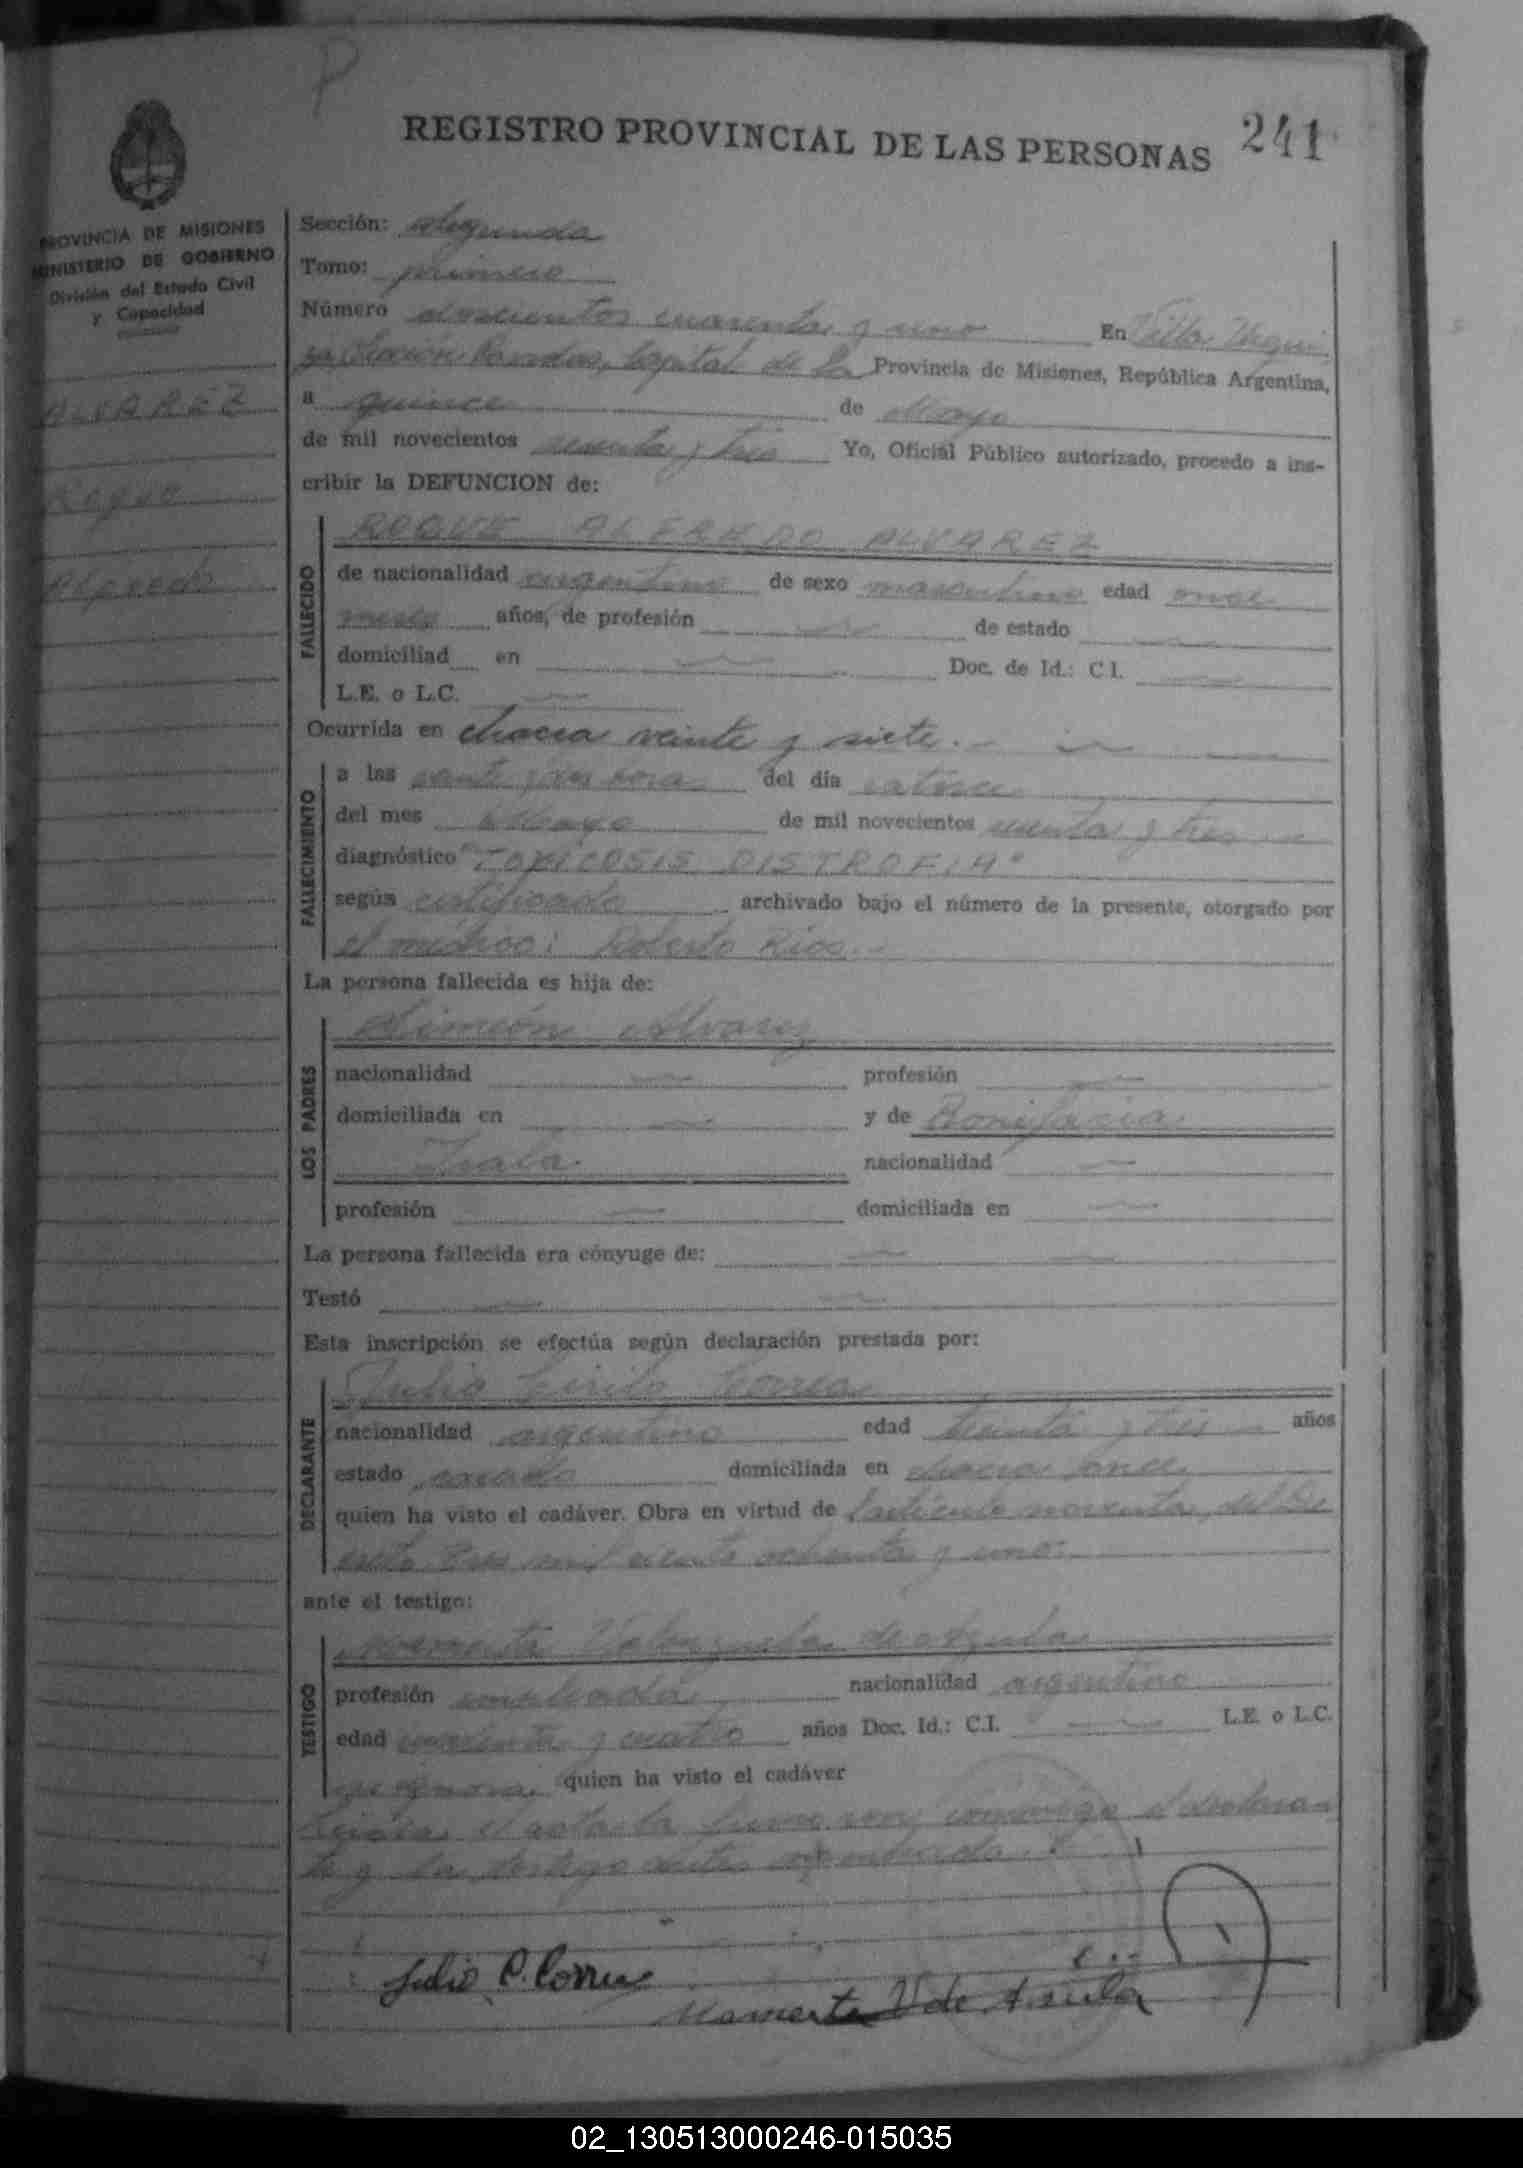 P
REGISTRO PROVINCIAL DE LAS PERSONAS 241
PROVINCIA DE MISIONES
MINISTERIO DE GOBIERNO
División del Estado Civil
y Capacidad
ALVAREZ
Roque
Alfredo
Sección: Segunda
Tomo: primero
Número doscientos cuarenta y uno En Villa Urqui
za, Sección Posadas, Capital de la Provincia de Misiones, República Argentina,
a quince de Mayo
de mil novecientos sesenta y tres Yo, Oficial Público autorizado, procedo a ins-
cribir la DEFUNCION de:
FALLECIDO
ROQUE ALFREDO ALVAREZ
de nacionalidad argentino de sexo masculino edad once
meses años, de profesión de estado
domiciliad en Doc. de Id.: C.I.
L.E. o L.C.
Ocurrida en chacra veinte y siete.-
FALLECIMIENTO
a las veinte y dos horas del día catorce
del mes Mayo de mil novecientos sesenta y tres
diagnóstico "TOXICOSIS DISTROFIA"
según certificado archivado bajo el número de la presente, otorgado por
el médico: Roberto Ríos.-
La persona fallecida es hija de:
LOS PADRES
Simeón Alvarez
nacionalidad profesión
domiciliada en y de Bonifacia
Irala nacionalidad
profesión domiciliada en
La persona fallecida era cónyuge de:
Testó
Esta inscripción se efectúa según declaración prestada por:
DECLARANTE
Julio Cirilo Correa
nacionalidad argentino edad treinta y tres años
estado casado domiciliada en chacra once
quien ha visto el cadáver. Obra en virtud de l'artículo noventa, del De
creto tres mil ciento ochenta y uno.-
ante el testigo:
TESTIGO
Mamerta Valenzuela de
profesión empleada nacionalidad argentina
edad cuarenta y cuatro años Doc. Id.: C.I. L.E. o L.C.
se ignora. quien ha visto el cadáver
Leída el acta la firmaron conmigo el declaran
te y la testigo antes nombrada.
Julio C. Correa
Mamerta V de
02_130513000246-015035